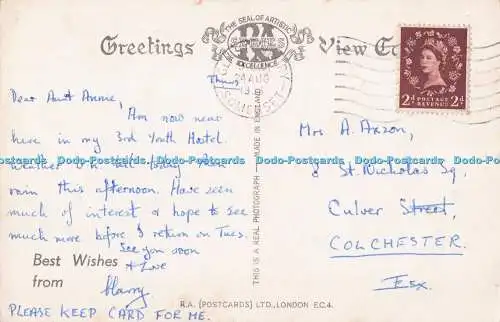 THE SEAL OF ARTISTIC
RA
EXCELLENCE
Greetings
View
24 AUG
SOMERSET
2d POSTAGE REVENUE 2d
Thurs
Dear Aunt Annie,
Am now near
here in my 3rd Youth Hostel.
rain this afternoon. Have seen
much of interest & hope to see
much more before I return on Tues.
See you soon
& Love
Best Wishes
from
Harry
PLEASE KEEP CARD FOR ME.
THIS IS A REAL PHOTOGRAPH — MADE IN ENGLAND
R.A. (POSTCARDS) LTD., LONDON E.C.4.
Mrs A. Axson,
8 St. Nicholas Sq,
Culver Street,
COLCHESTER.
Essex
Dodo-Postcards Dodo-Postcards Dodo-Postcards Dodo-Postcards Dodo-Postcards